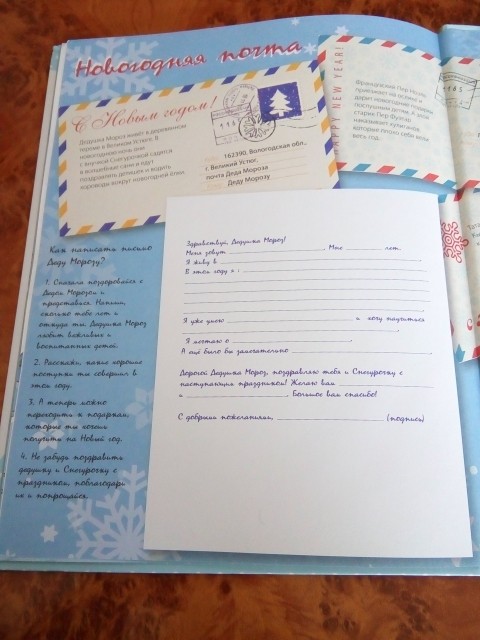 Новогодняя почта
С Новым годом!
Дедушка Мороз живёт в деревянном
тереме в Великом Устюге. В
новогоднюю ночь они
с внучкой Снегурочкой садятся
в волшебные сани и едут
поздравлять детишек и водить
хороводы вокруг новогодней ёлки.
162390, Вологодская обл.,
г. Великий Устюг,
почта Деда Мороза
Деду Морозу
HAPPY NEW YEAR!
Французский Пер Ноэль
приезжает на ослике и
дарит новогодние подарки
послушным детям. А злой
старик Пер Фуэтар
наказывает хулиганов,
которые плохо себя вели
весь год.
Как написать письмо
Деду Морозу?
1. Сначала поздоровайся с
Дедом Морозом и
представься. Напиши,
сколько тебе лет и
откуда ты. Дедушка Мороз
любит вежливых и
воспитанных детей.
2. Расскажи, какие хорошие
поступки ты совершил в
этом году.
3. А теперь можно
переходить к подаркам,
которые ты хочешь
получить на Новый год.
4. Не забудь поздравить
дедушку и Снегурочку с
праздником, поблагодари
их и попрощайся.
Здравствуй, Дедушка Мороз!
Меня зовут . Мне лет.
Я живу в .
В этом году я :
Я уже умею и хочу научиться
.
Я мечтаю о .
А ещё было бы замечательно .
Дорогой Дедушка Мороз, поздравляю тебя и Снегурочку с
наступающим праздником! Желаю вам
и . Большое вам спасибо!
С добрыми пожеланиями, (подпись)